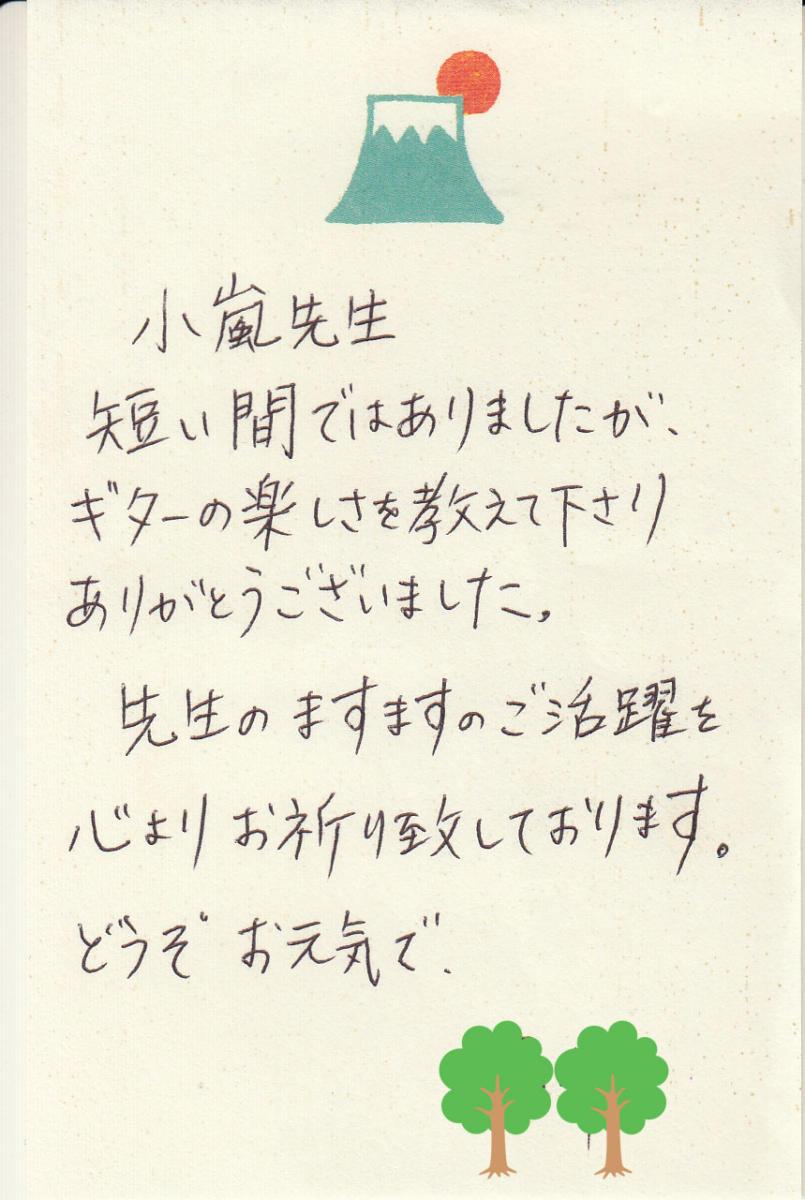 小嵐先生
短い間ではありましたが、
ギターの楽しさを教えて下さり
ありがとうございました。
先生のますますのご活躍を
心よりお祈り致しております。
どうぞお元気で、